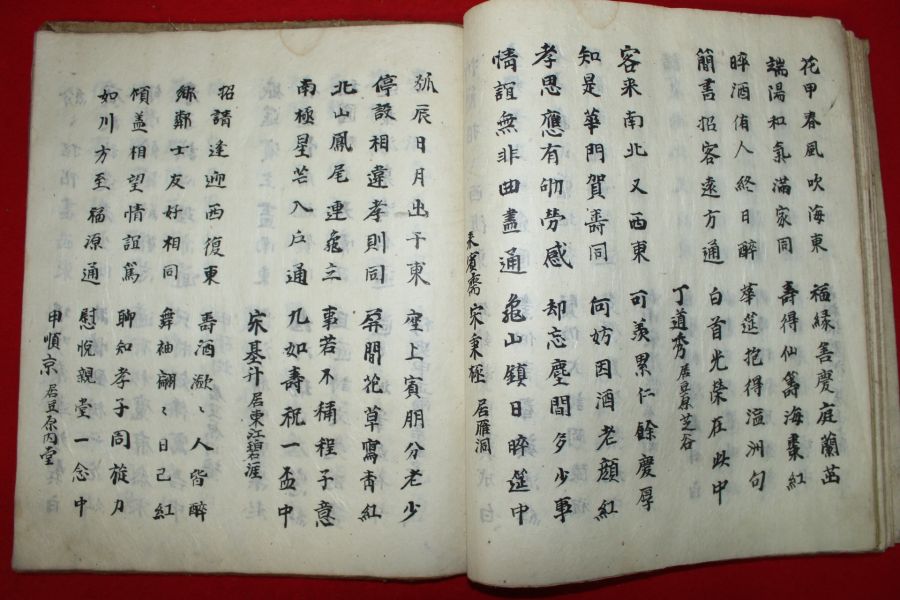 花甲春風吹海東 福緣善慶庭蘭茁
端陽和氣滿家同 壽得仙籌海棗紅
晬酒侑人終日醉 華筵抱得瀛洲句
簡書招客遠方通 白首光榮在此中
丁道秀 居豆原芝谷
容來南北又西東 可羨累仁餘慶厚
知是華門賀壽同 何妨因酒老顏紅
孝思應有劬勞感 却忘塵間多少事
情誼無非曲盡通 龜山鎮日晬筵中
宋秉極 居雁洞
弧辰日月出于東 座上賓朋分老少
停設相違孝則同 屏間花草寫青紅
北山鳳尾連龜立 事若不稱程子意
南極星芒入戶通 九如壽祝一盃中
宋基升 居東江碧涯
招請逢迎西復東 壽酒漱〻人皆醉
鄉鄰士友好相同 舞袖翩〻日已紅
傾盖相望情誼篤 聊知孝子同旋力
如川方至福源通 慰悅親堂一念中
申順京 居豆原內堂